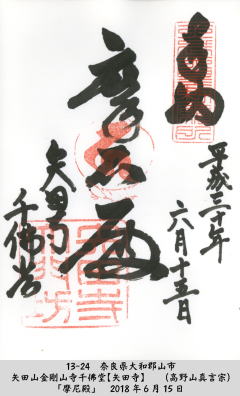 奉拝
平成三十年
六月十五日
摩尼殿
矢田山
千佛堂
13-24 奈良県大和郡山市
矢田山金剛山寺千佛堂【矢田寺】 (高野山真言宗)
「摩尼殿」 2018年6月15日